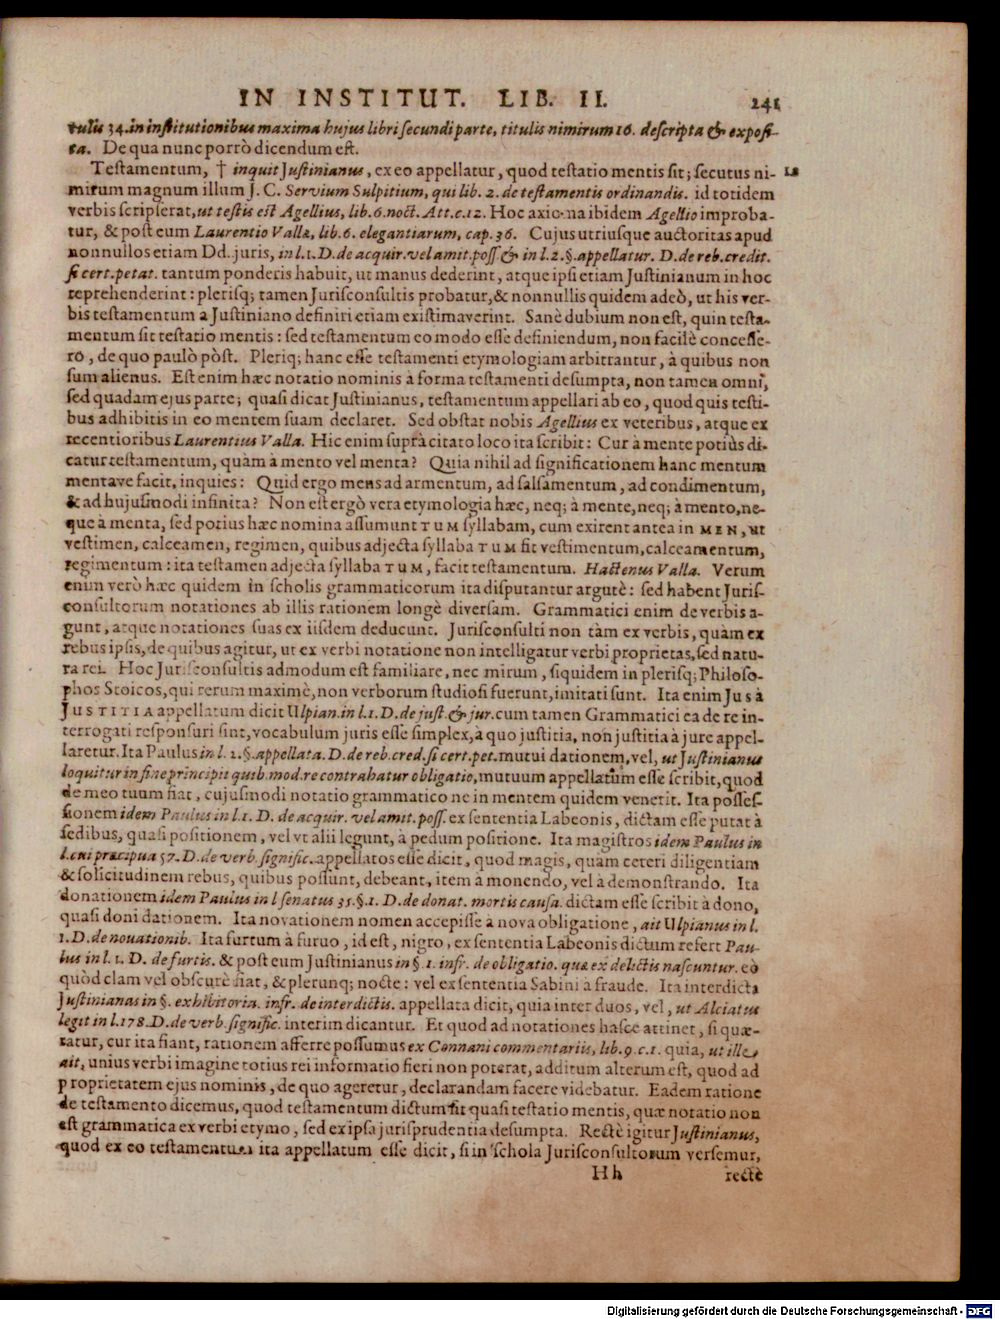 IN INSTITUT. LIB. II. 241
tulis 34. in institutionibus maxima hujus libri secundi parte, titulis nimirum 16. descripta & exposi-
ta. De qua nunc porrò dicendum est.
Testamentum, † inquit Justinianus, ex eo appellatur, quod testatio mentis sit; secutus ni- 1.
mirum magnum illum J. C. Servium Sulpitium, qui lib. 2. de testamentis ordinandis. id totidem
verbis scripserat, ut testis est Agellius, lib. 6. noct. Att. c. 12. Hoc axioma ibidem Agellio improba-
tur, & post eum Laurentio Vallæ, lib. 6. elegantiarum, cap. 36. Cujus utriusque auctoritas apud
nonnullos etiam Dd. juris, in l. 1. D. de acquir. vel amit. poss. & in l. 2. §. appellatur. D. de reb. credit.
si cert. petat. tantum ponderis habuit, ut manus dederint, atque ipsi etiam Justinianum in hoc
reprehenderint: plerisq; tamen Jurisconsultis probatur, & nonnullis quidem adeò, ut his ver-
bis testamentum a Justiniano definiri etiam existimaverint. Sanè dubium non est, quin testa-
mentum sit testatio mentis: sed testamentum eo modo esse definiendum, non facilè concesse-
ro, de quo paulò pòst. Pleriq; hanc esse testamenti etymologiam arbitrantur, à quibus non
sum alienus. Est enim hæc notatio nominis à forma testamenti desumpta, non tamen omni,
sed quadam ejus parte; quasi dicat Justinianus, testamentum appellari ab eo, quod quis testi-
bus adhibitis in eo mentem suam declaret. Sed obstat nobis Agellius ex veteribus, atque ex
recentioribus Laurentius Valla. Hic enim suprà citato loco ita scribit: Cur à mente potiùs di-
catur testamentum, quàm à mento vel menta? Quia nihil ad significationem hanc mentum
mentave facit, inquies: Quid ergo mens ad armentum, ad salsamentum, ad condimentum,
& ad hujusmodi infinita? Non est ergò vera etymologia hæc, neq; à mente, neq; à mento, ne-
que à menta, sed potius hæc nomina assumunt TUM syllabam, cum exirent antea in MEN, ut
vestimen, calceamen, regimen, quibus adjecta syllaba TUM fit vestimentum, calceamentum,
regimentum: ita testamen adjecta syllaba TUM, facit testamentum. Hactenus Valla. Verum
enim verò hæc quidem in scholis grammaticorum ita disputantur argutè: sed habent Juris-
consultorum notationes ab illis rationem longè diversam. Grammatici enim de verbis a-
gunt, atque notationes suas ex iisdem deducunt. Jurisconsulti non tàm ex verbis, quàm ex
rebus ipsis, de quibus agitur, ut ex verbi notatione non intelligatur verbi proprietas, sed natu-
ra rei. Hoc Jurisconsultis admodum est familiare, nec mirum, siquidem in plerisq; Philoso-
phos Stoicos, qui rerum maximè, non verborum studiosi fuerunt, imitati sunt. Ita enim Jus à
JUSTITIA appellatum dicit Ulpian. in l. 1. D. de just. & jur. cum tamen Grammatici ea de re in-
terrogati responsuri sint, vocabulum juris esse simplex, à quo justitia, non justitia à jure appel-
laretur. Ita Paulus in l. 2. §. appellata. D. de reb. cred. si cert. pet. mutui dationem, vel, ut Justinianus
loquitur in fine principii quib. mod. re contrahatur obligatio, mutuum appellatum esse scribit, quod
de meo tuum fiat, cujusmodi notatio grammatico ne in mentem quidem venerit. Ita posses-
sionem idem Paulus in l. 1. D. de acquir. vel amit. poss. ex sententia Labeonis, dictam esse putat à
sedibus, quasi positionem, vel vt alii legunt, à pedum positione. Ita magistros idem Paulus in
l. cui præcipua 57. D. de verb. signific. appellatos esse dicit, quod magis, quàm ceteri diligentiam
& solicitudinem rebus, quibus possunt, debeant, item à monendo, vel à demonstrando. Ita
donationem idem Paulus in l senatus 35. §. 1. D. de donat. mortis causa. dictam esse scribit à dono,
quasi doni dationem. Ita novationem nomen accepisse à nova obligatione, ait Ulpianus in l.
1. D. de nouationib. Ita furtum à furuo, id est, nigro, ex sententia Labeonis dictum refert Pau-
lus in l. 1. D. de furtis. & post eum Justinianus in §. 1. infr. de obligatio. quæ ex delictis nascuntur. eò
quòd clam vel obscurè fiat, & plerunq; nocte: vel ex sententia Sabini à fraude. Ita interdicta
Justinianus in §. exhibitoria. infr. de interdictis. appellata dicit, quia inter duos, vel, ut Alciatus
legit in l. 178. D. de verb. signific. interim dicantur. Et quod ad notationes hasce attinet, si quæ-
ratur, cur ita fiant, rationem afferre possumus ex Connani commentariis, lib. 9. c. 1. quia, ut ille
ait, unius verbi imagine totius rei informatio fieri non poterat, additum alterum est, quod ad
proprietatem ejus nominis, de quo ageretur, declarandam facere videbatur. Eadem ratione
de testamento dicemus, quod testamentum dictum sit quasi testatio mentis, quæ notatio non
est grammatica ex verbi etymo, sed ex ipsa jurisprudentia desumpta. Rectè igitur Justinianus,
quod ex eo testamentum ita appellatum esse dicit, si in schola Jurisconsultorum versemur,
Hh rectè
Digitalisierung gefördert durch die Deutsche Forschungsgemeinschaft - DFG